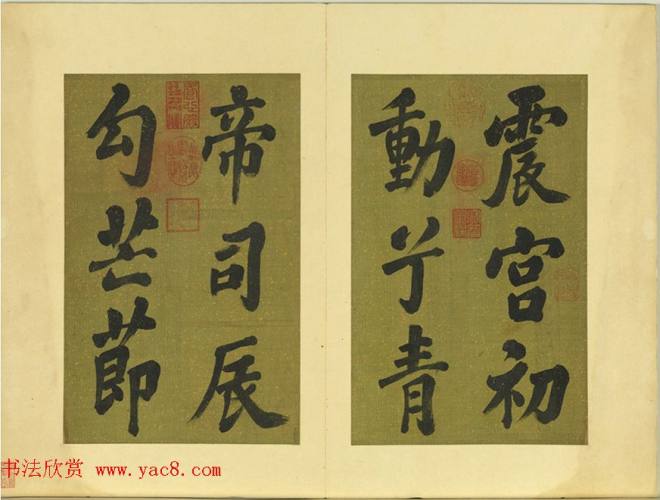 震宫初
動兮青
帝司辰
勾芒莭
书法欣赏 www.yac8.com